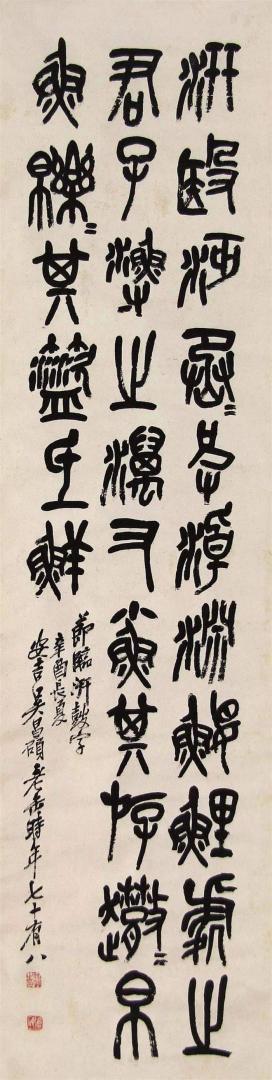 汧殹沔丞〓皮淖淵鰋鯉處之
君子漁之澫又小魚其斿趣〓帛
魚皪〓其盜氐鮮
節臨汧鼓字
辛酉長夏
安吉吳昌碩老缶時年七十有八